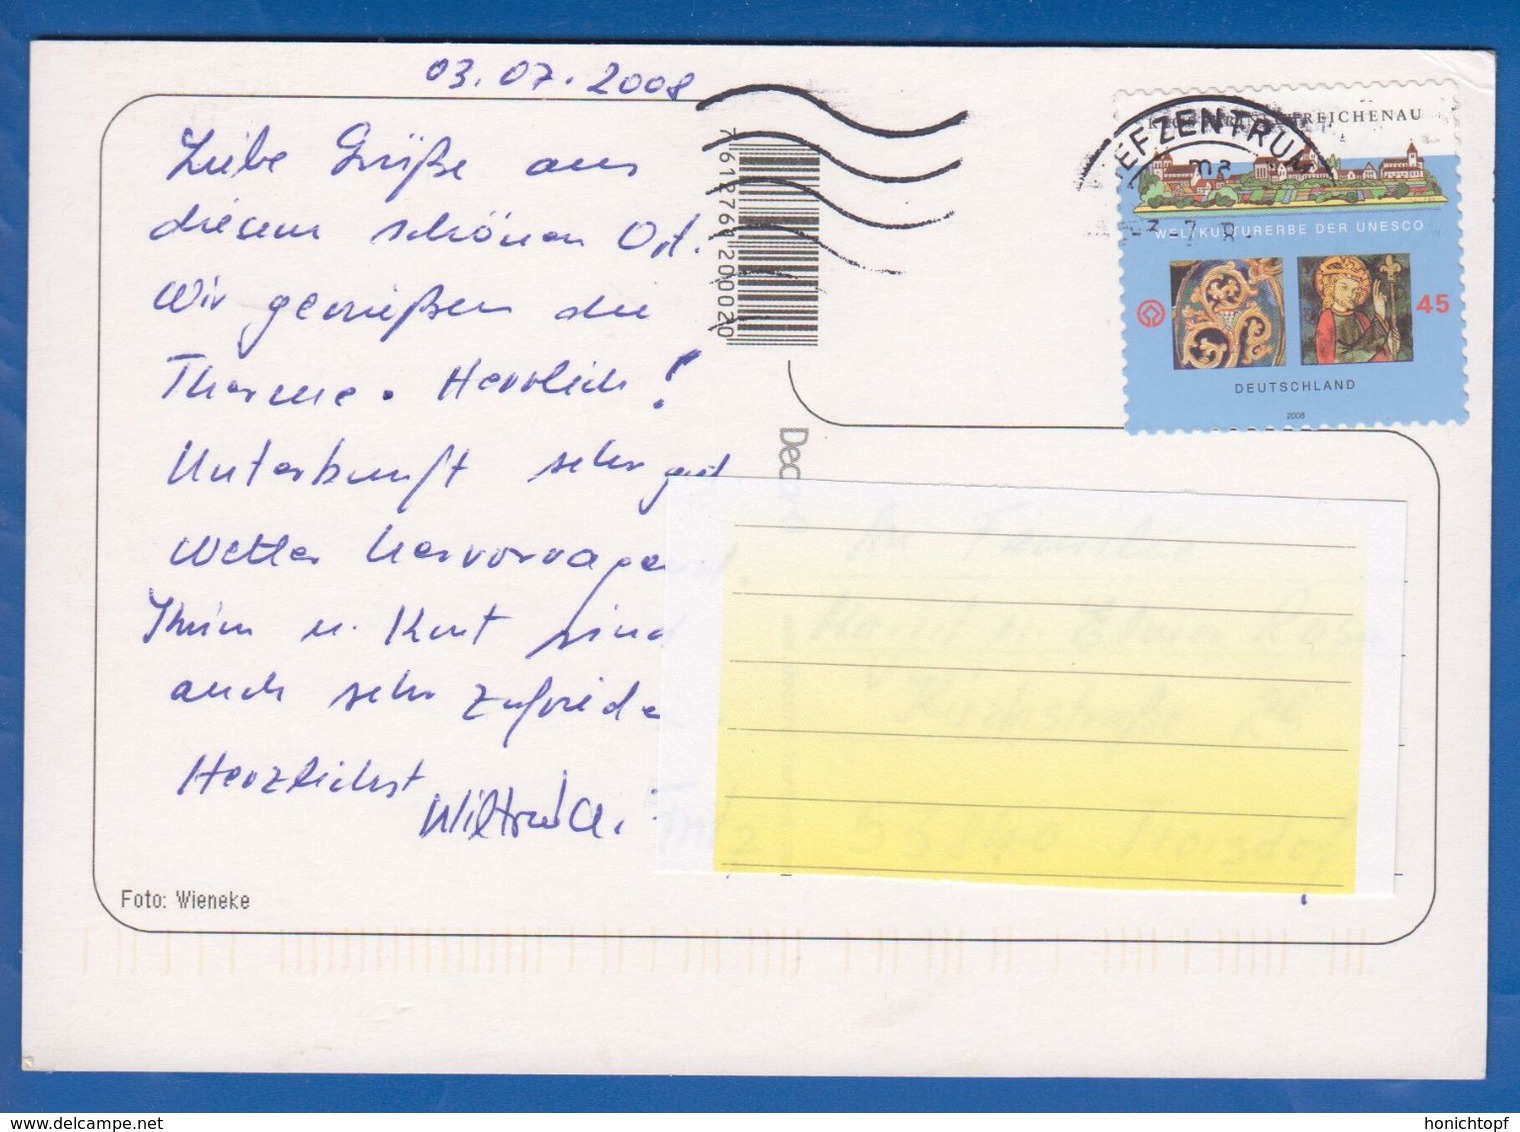 03.07.2008
Liebe Grüße aus
diesem schönen Ort.
Wir genießen die
Therme. Herrlich!
Unterkunft sehr gut
Wetter hervorragend.
u. Kurt sind
auch sehr zufriede
Herzlichst
Foto: Wieneke
7 612761 200020
Dec
EFZENTRUM
3-7 8
REICHENAU
WELTKULTURERBE DER UNESCO
45
DEUTSCHLAND
2008
www.delcampe.net
honichtopf